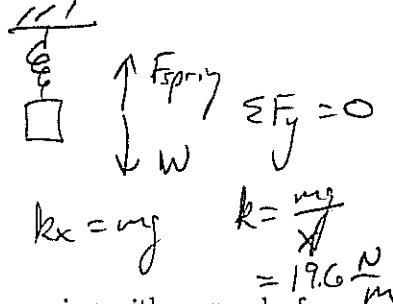 Fspring
ΣFy = 0
W
kx = mg
k = mg/x
= 19.6 N/m